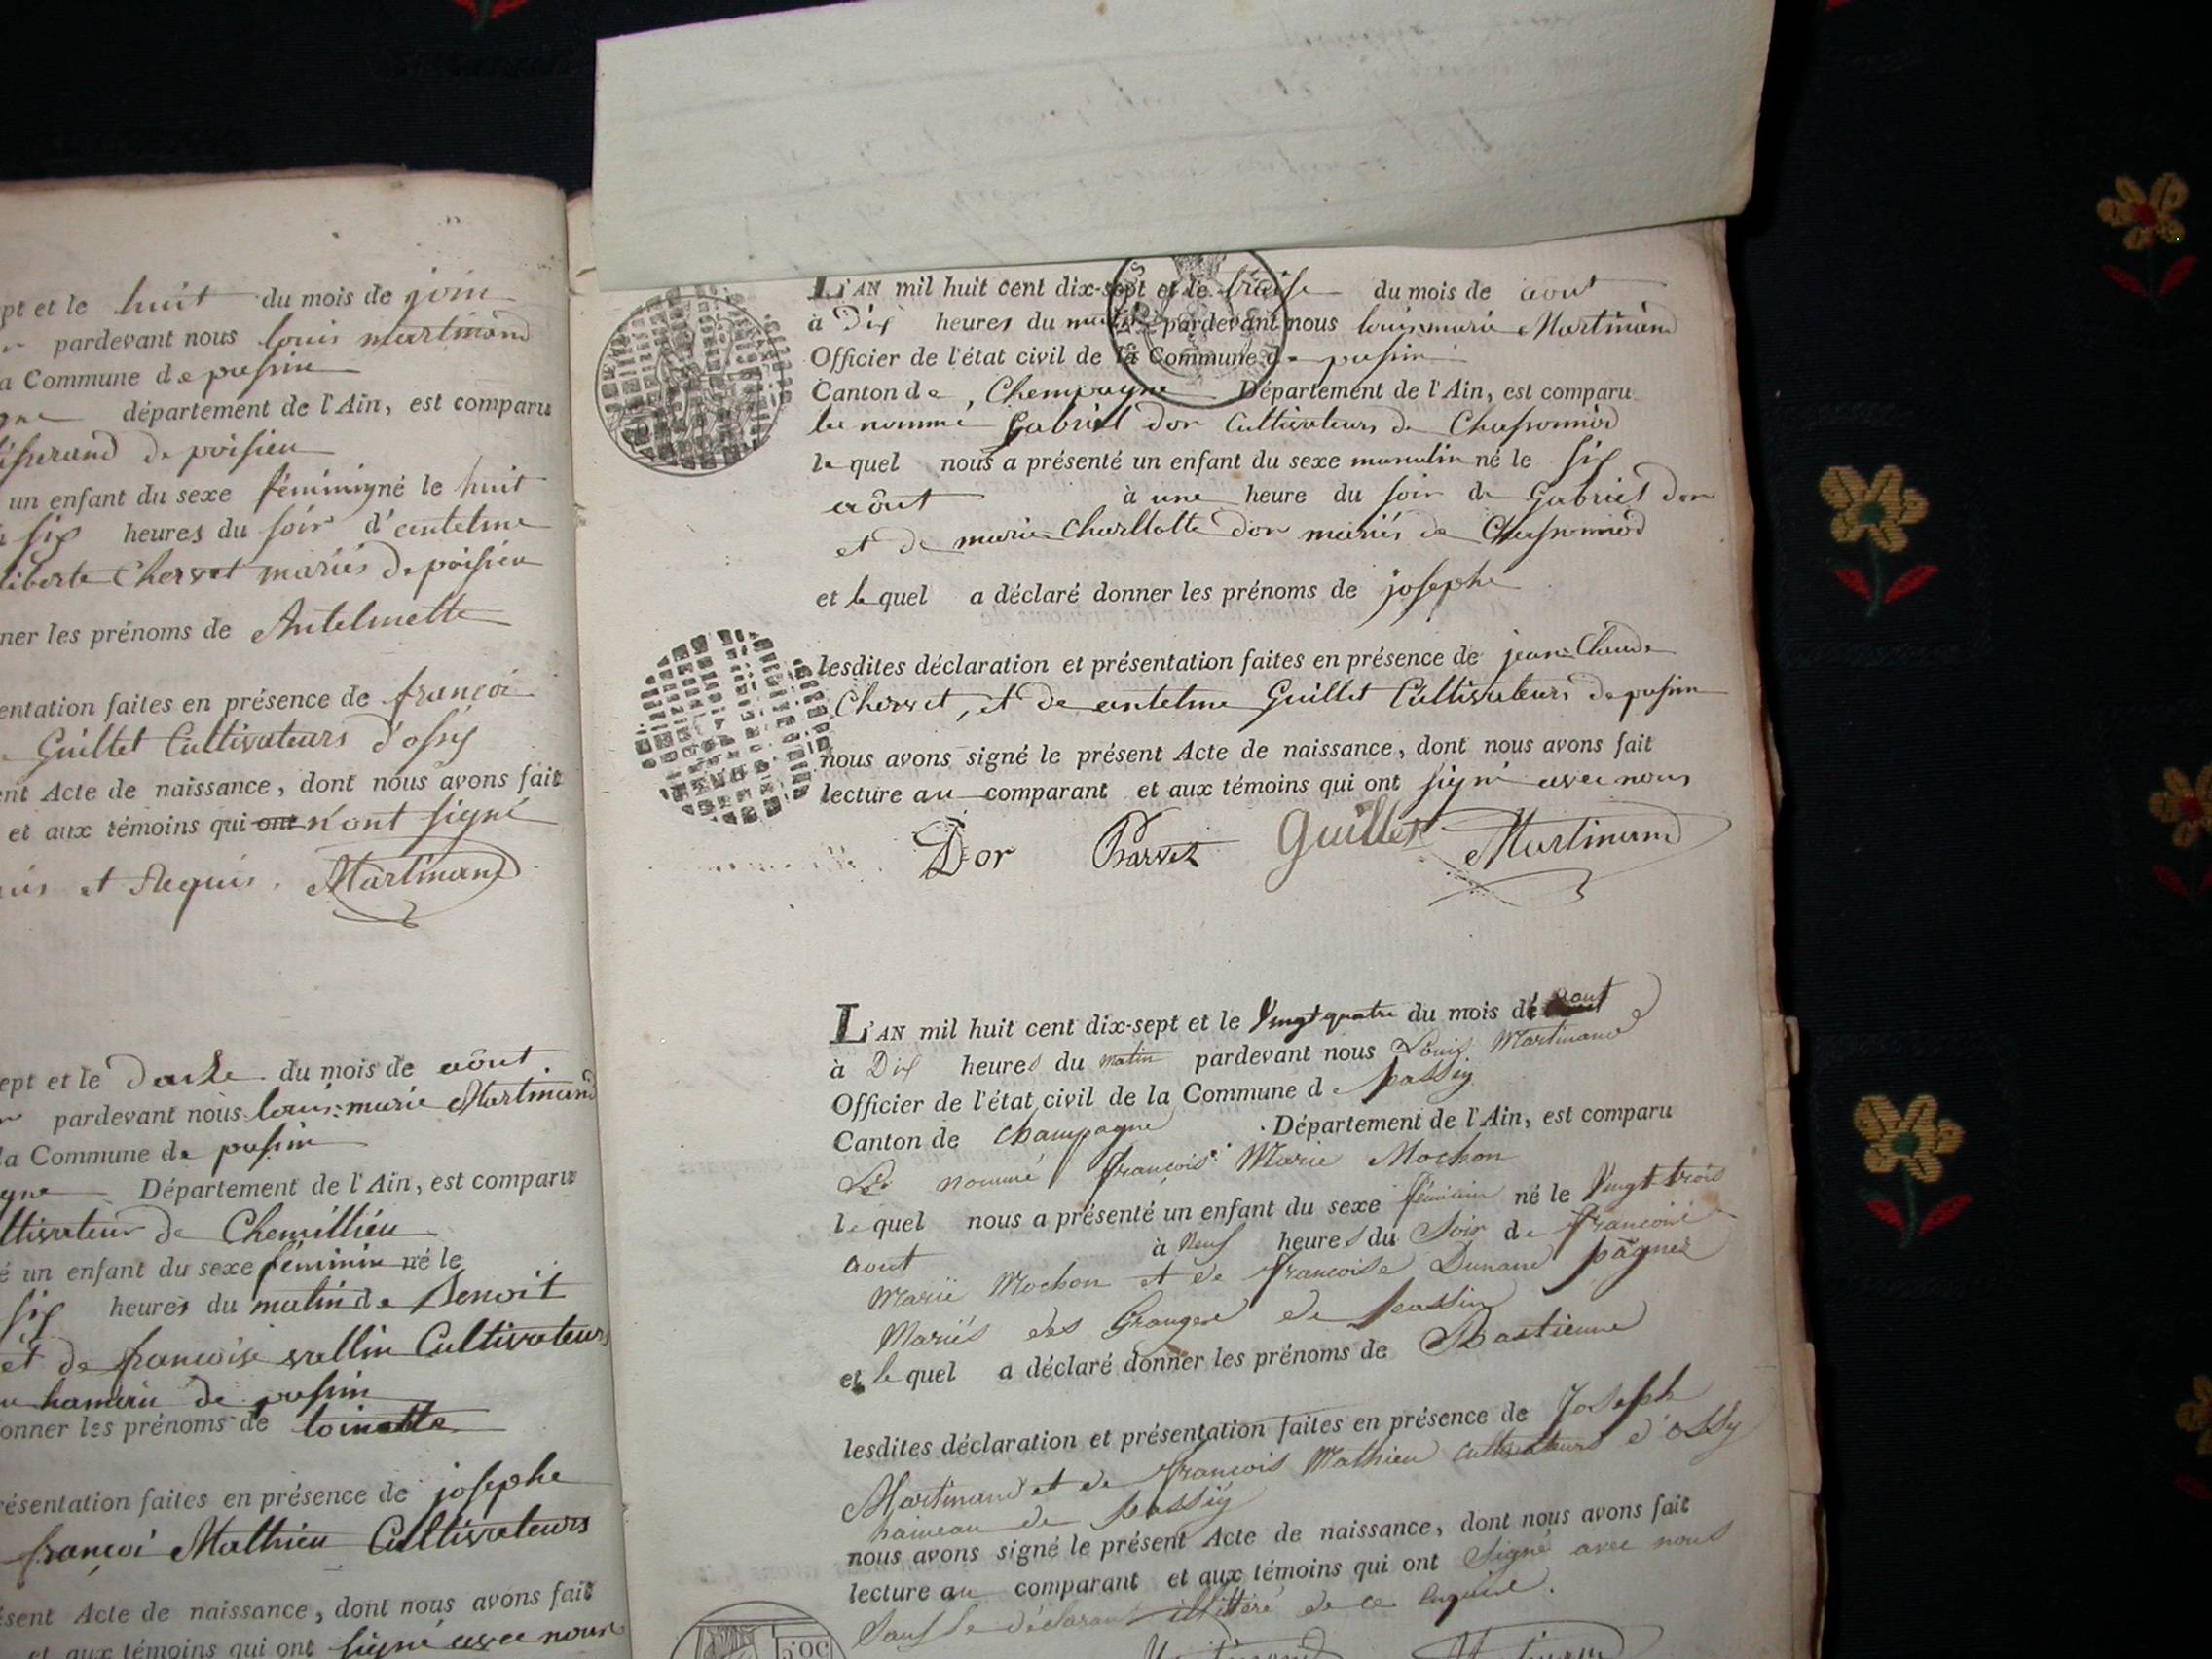 pt et le huit du mois de join
pardevant nous louis martinand
a Commune de pasin
gne département de l'Ain, est comparu
tisserand de poisieu
un enfant du sexe féminin né le huit
à six heures du soir d'antelme
liberte Chervet mariés de poisieu
ner les prénoms de Antelmette
entation faites en présence de françoi
Guillet Cultivateurs d'ossy
ent Acte de naissance, dont nous avons fait
et aux témoins qui ont n'ont signé
uis et Requis. Martinand
ept et le douze du mois de aôut
pardevant nous louis marie Martinand
la Commune de pasin
gne Département de l'Ain, est comparu
ltivateur de Chemillieu
é un enfant du sexe féminin né le
six heures du matin de Benoit
et de françoise vallin Cultivateurs
hameau de pasin
onner les prénoms de toinette
résentation faites en présence de josephe
françoi Mathieu Cultivateurs
ésent Acte de naissance, dont nous avons fait
et aux témoins qui ont signé avec nous
L'AN mil huit cent dix-sept et le traise du mois de aout
à Dix heures du matin pardevant nous louis marie Martinand
Officier de l'état civil de la Commune de pasin
Canton de Champagne Département de l'Ain, est comparu
le nommé Gabriel dor Cultivateurs de Chassonnod
le quel nous a présenté un enfant du sexe masculin né le six
aôut à une heure du soir de Gabriel dor
et de marie Charllotte dor mariés de Chassonnod
et le quel a déclaré donner les prénoms de josephe
lesdites déclaration et présentation faites en présence de jean Claude
Chervet, et de antelme Guillet Cultivateurs de pasin
nous avons signé le présent Acte de naissance, dont nous avons fait
lecture au comparant et aux témoins qui ont signé avec nous
Dor Charvet Guillet Martinand
L'AN mil huit cent dix-sept et le Vingt quatre du mois de aout
à Dix heures du matin pardevant nous Louis Martinand
Officier de l'état civil de la Commune de passin
Canton de Champagne Département de l'Ain, est comparu
Le nommé françois Marie Mochon
le quel nous a présenté un enfant du sexe féminin né le Vingt trois
aout à Neuf heures du Soir de françois
Marie Mochon et de françoise Dunand pagnes
Mariés des Granges de passin
et le quel a déclaré donner les prénoms de Bastienne
lesdites déclaration et présentation faites en présence de Joseph
Martinand et de françois Mathieu cultivateurs d'ossy
hameau de passin
nous avons signé le présent Acte de naissance, dont nous avons fait
lecture au comparant et aux témoins qui ont signé avec nous
Sauf le déclarant illitéré de ce Enquis.